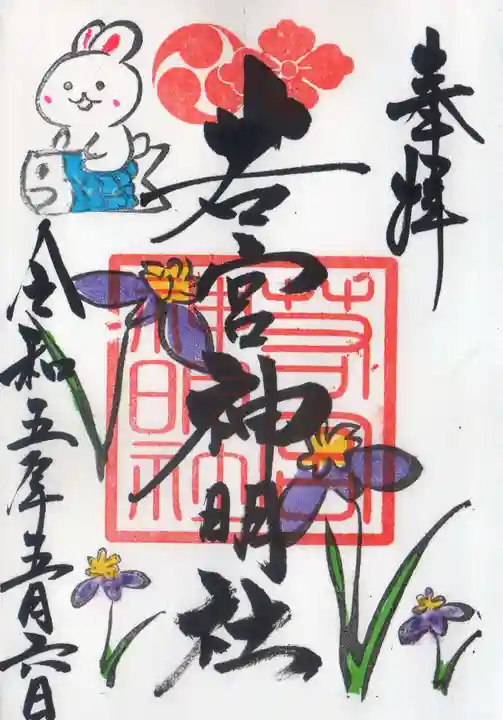 奉拝
若宮神明社
若宮
神明社
令和五年五月六日